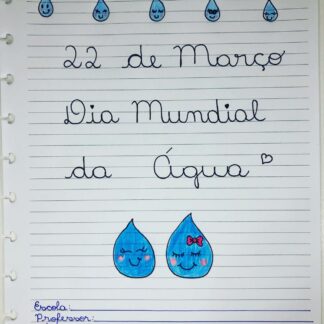 22 de Março
Dia Mundial
da Água
Escola:
Professor: